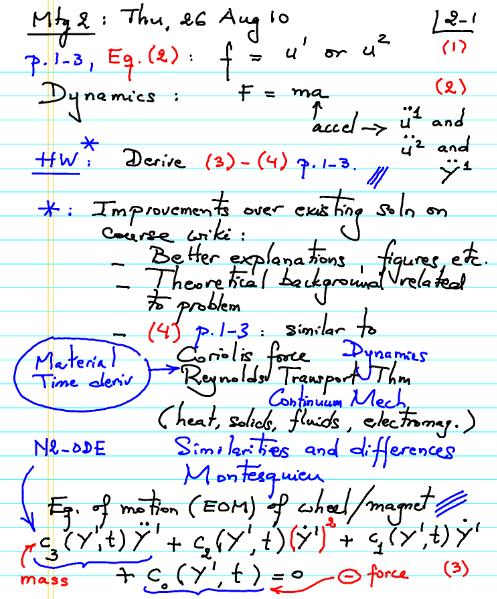 Mtg 2 : Thu, 26 Aug 10 2-1
p.1-3, Eq. (2) : f = u¹ or u² (1)
Dynamics : F = ma (2)
accel → ü¹ and
ü² and
Ÿ¹
HW* : Derive (3) - (4) p. 1-3.
* : Improvements over existing soln on
course wiki :
- Better explanations, figures, etc.
- Theoretical background related
to problem
- (4) p.1-3 : similar to
Coriolis force Dynamics
Material
Time deriv → Reynolds Transport Thm
Continuum Mech,
(heat, solids, fluids, electromag.)
N2-ODE Similarities and differences
Montesquieu
Eq. of motion (EOM) of wheel/magnet
c₃(Y¹,t) Ÿ¹ + c₂(Y¹,t)(Ẏ¹)² + c₁(Y¹,t) Ẏ¹
mass + c₀(Y¹,t) = 0 ← ⊖ force (3)